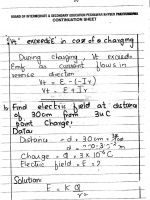 BOARD OF INTERMEDIATE & SECONDARY EDUCATION
CONTINUATION SHEET
'Vt' exceeds 'E' in case of a charging
During charging, Vt exceeds
Emf as current flows in
reverse direction
Vt = E - (-Ir)
Vt = E + Ir
b. Find electric field at distance
of 30cm from 3uC
point Charge:
Data:
Distance = d = 30cm =
d = 0.3 m
Charge = Q = 3 x 10⁻⁶ C
Electric field = E = ?
Solution:
E = K Q
r²